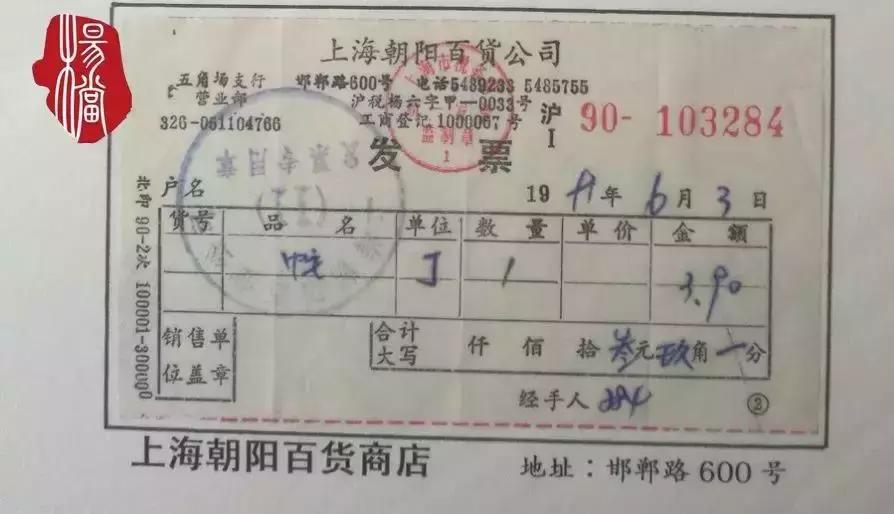 杨档
上海朝阳百货公司
五角场支行 邯郸路600号 电话5489233 5485755
营业部 沪税杨六字甲—0033号
326-051104766 工商登记1000067号
沪I 90- 103284
监制章
1
发票
户名 19 年 6 月 3 日
货号 品名 单位 数量 单价 金额
1 3.90
销售单位盖章
合计大写 仟 佰 拾 叁元玖角一分
经手人
②
北印 90-2次 100001-300000
上海朝阳百货商店 地址：邯郸路600号